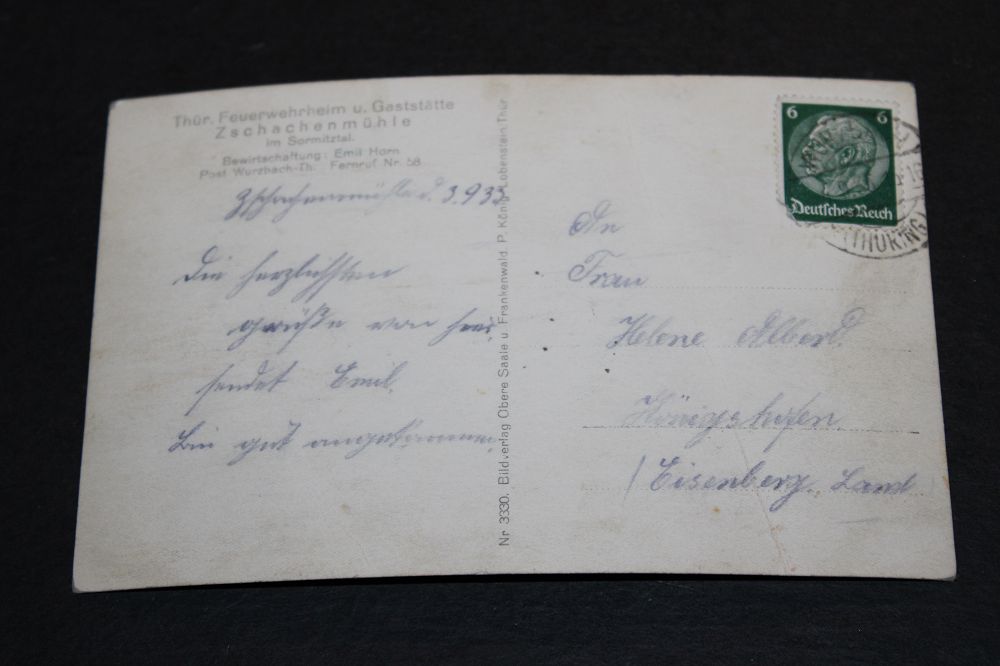 Thür. Feuerwehrheim u. Gaststätte
Zschachenmühle
im Sormitztal.
Bewirtschaftung: Emil Horn
Post Wurzbach-Th. Fernruf Nr. 58
Zschachenmühle d. 3.9.33
Die herzlichsten
grüße von hier
sendet Emil.
Bin gut angekommen.
Nr. 3330. Bildverlag Obere Saale u. Frankenwald P. König, Lobenstein, Thür
6 6
Deutsches Reich
(THÜRING
An
Frau
Helene Alberd.
Königshofen
/ Eisenberg. Land